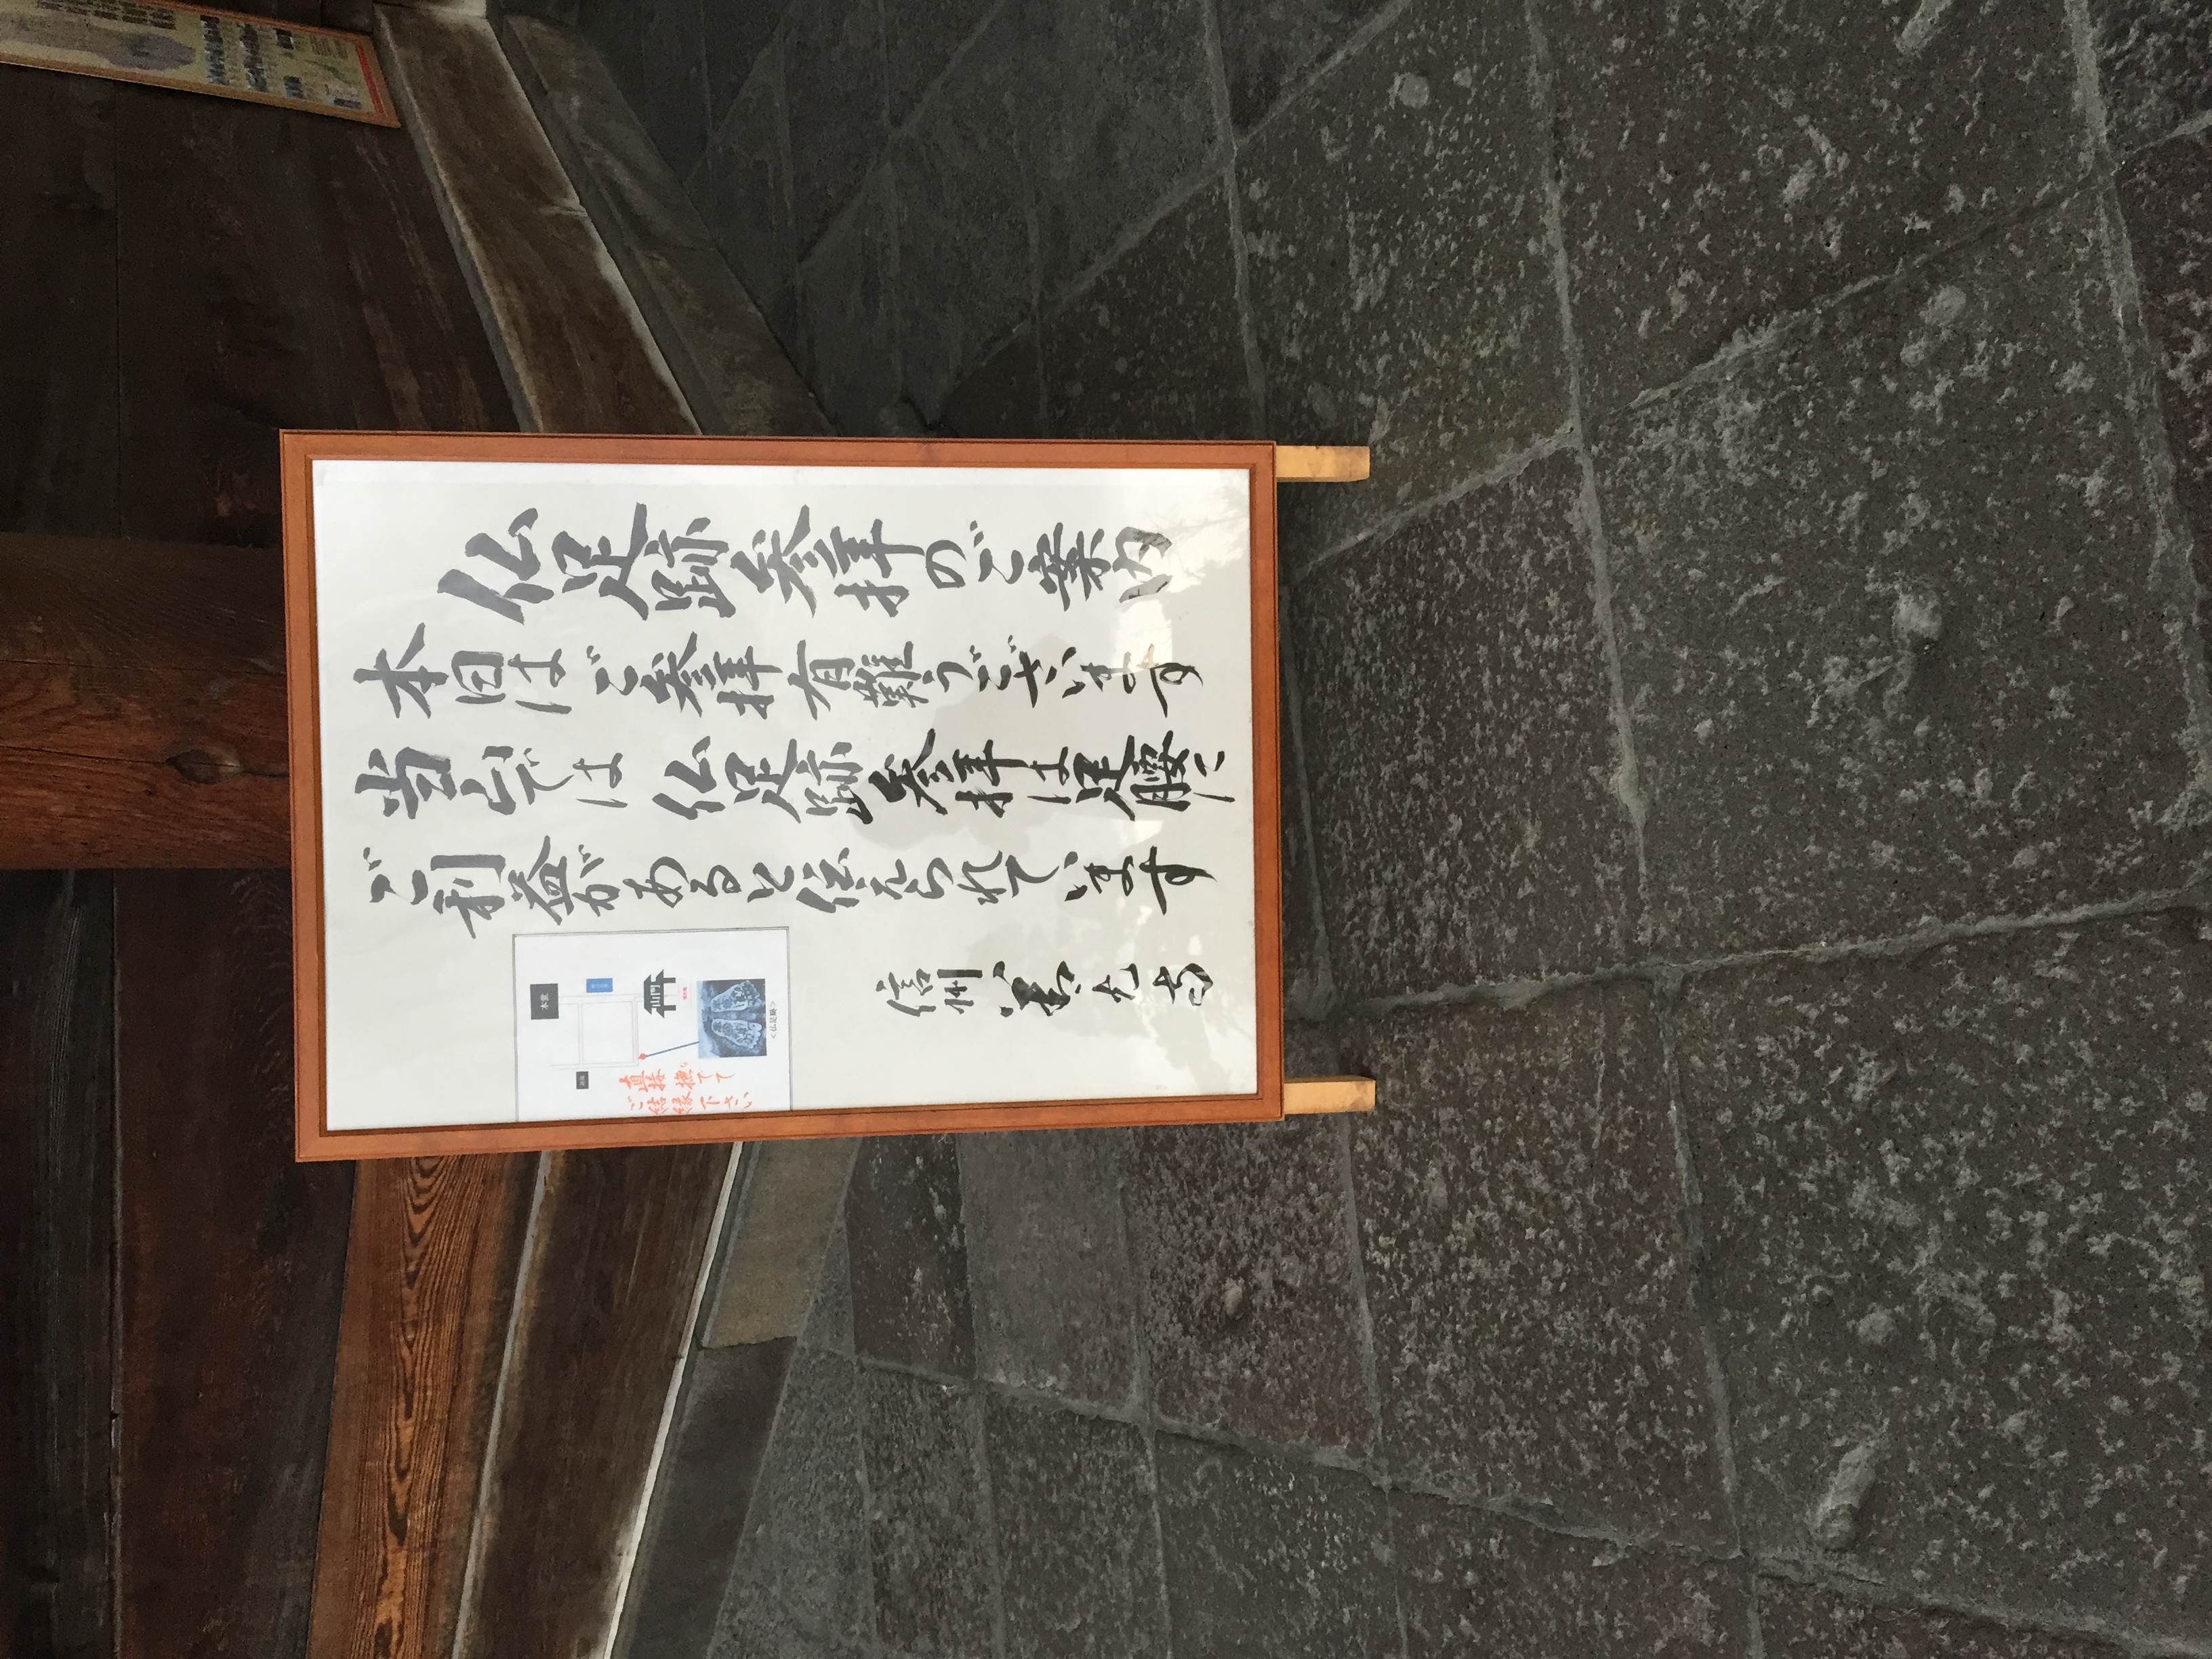 仏足跡参拝のご案内
本日はご参拝有難うございます
当山では仏足跡参拝は足腰に
ご利益があると伝えられています
信州善光寺
本堂
山門
<仏足跡>
直接撫でて
ご結縁下さい